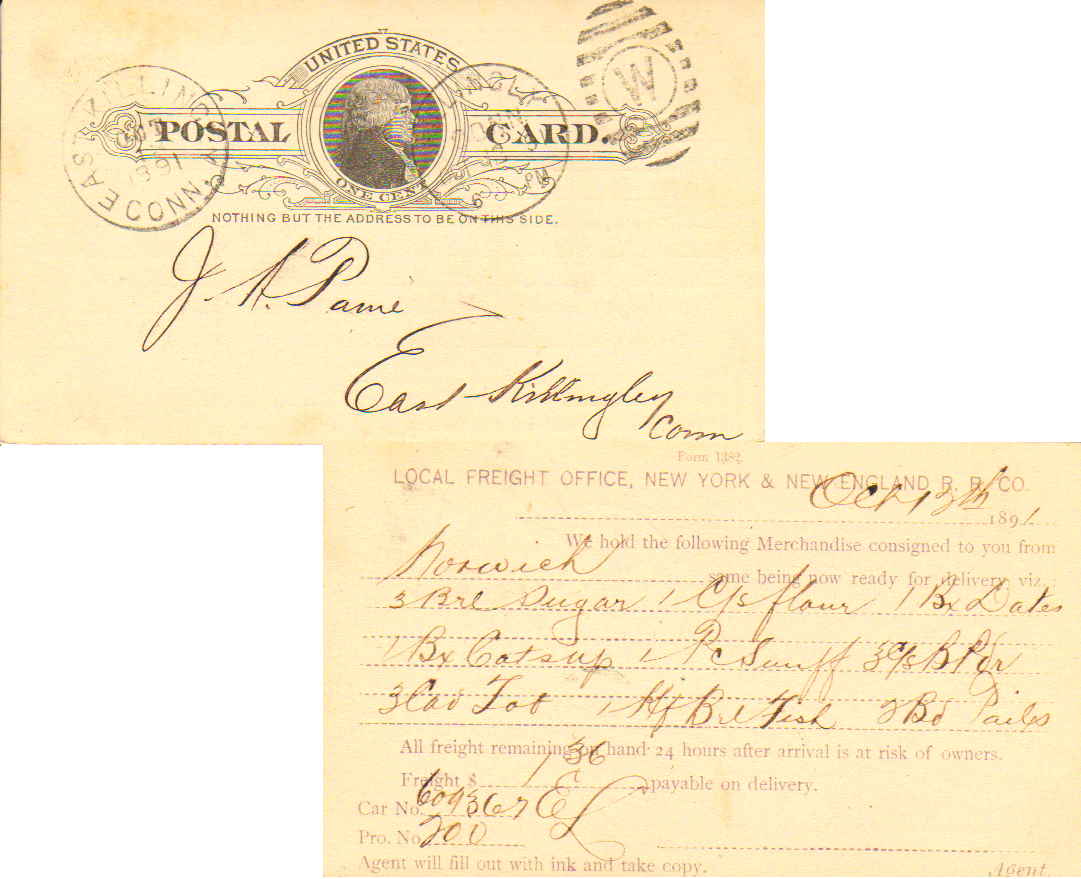 UNITED STATES
POSTAL CARD.
ONE CENT
EAST KILLINGLY CONN. 1891
W
NOTHING BUT THE ADDRESS TO BE ON THIS SIDE.
J. A. Paine
East Killingly
Conn
Form 1382
LOCAL FREIGHT OFFICE, NEW YORK & NEW ENGLAND R. R. CO.
Oct 13th 1891.
We hold the following Merchandise consigned to you from
Norwich same being now ready for delivery, viz.:
3 Brl Sugar 1 C/s flour 1 Bx Dates
1 Bx Catsup 1 Pc Snuff 3 C/s B Pdr
3 Cad Tob 1 Hf Brl Fish 2 Bd Pails
All freight remaining on hand 24 hours after arrival is at risk of owners.
Freight $ 1 36 payable on delivery.
Car No. 609367
Pro. No. 200
Agent will fill out with ink and take copy. Agent.